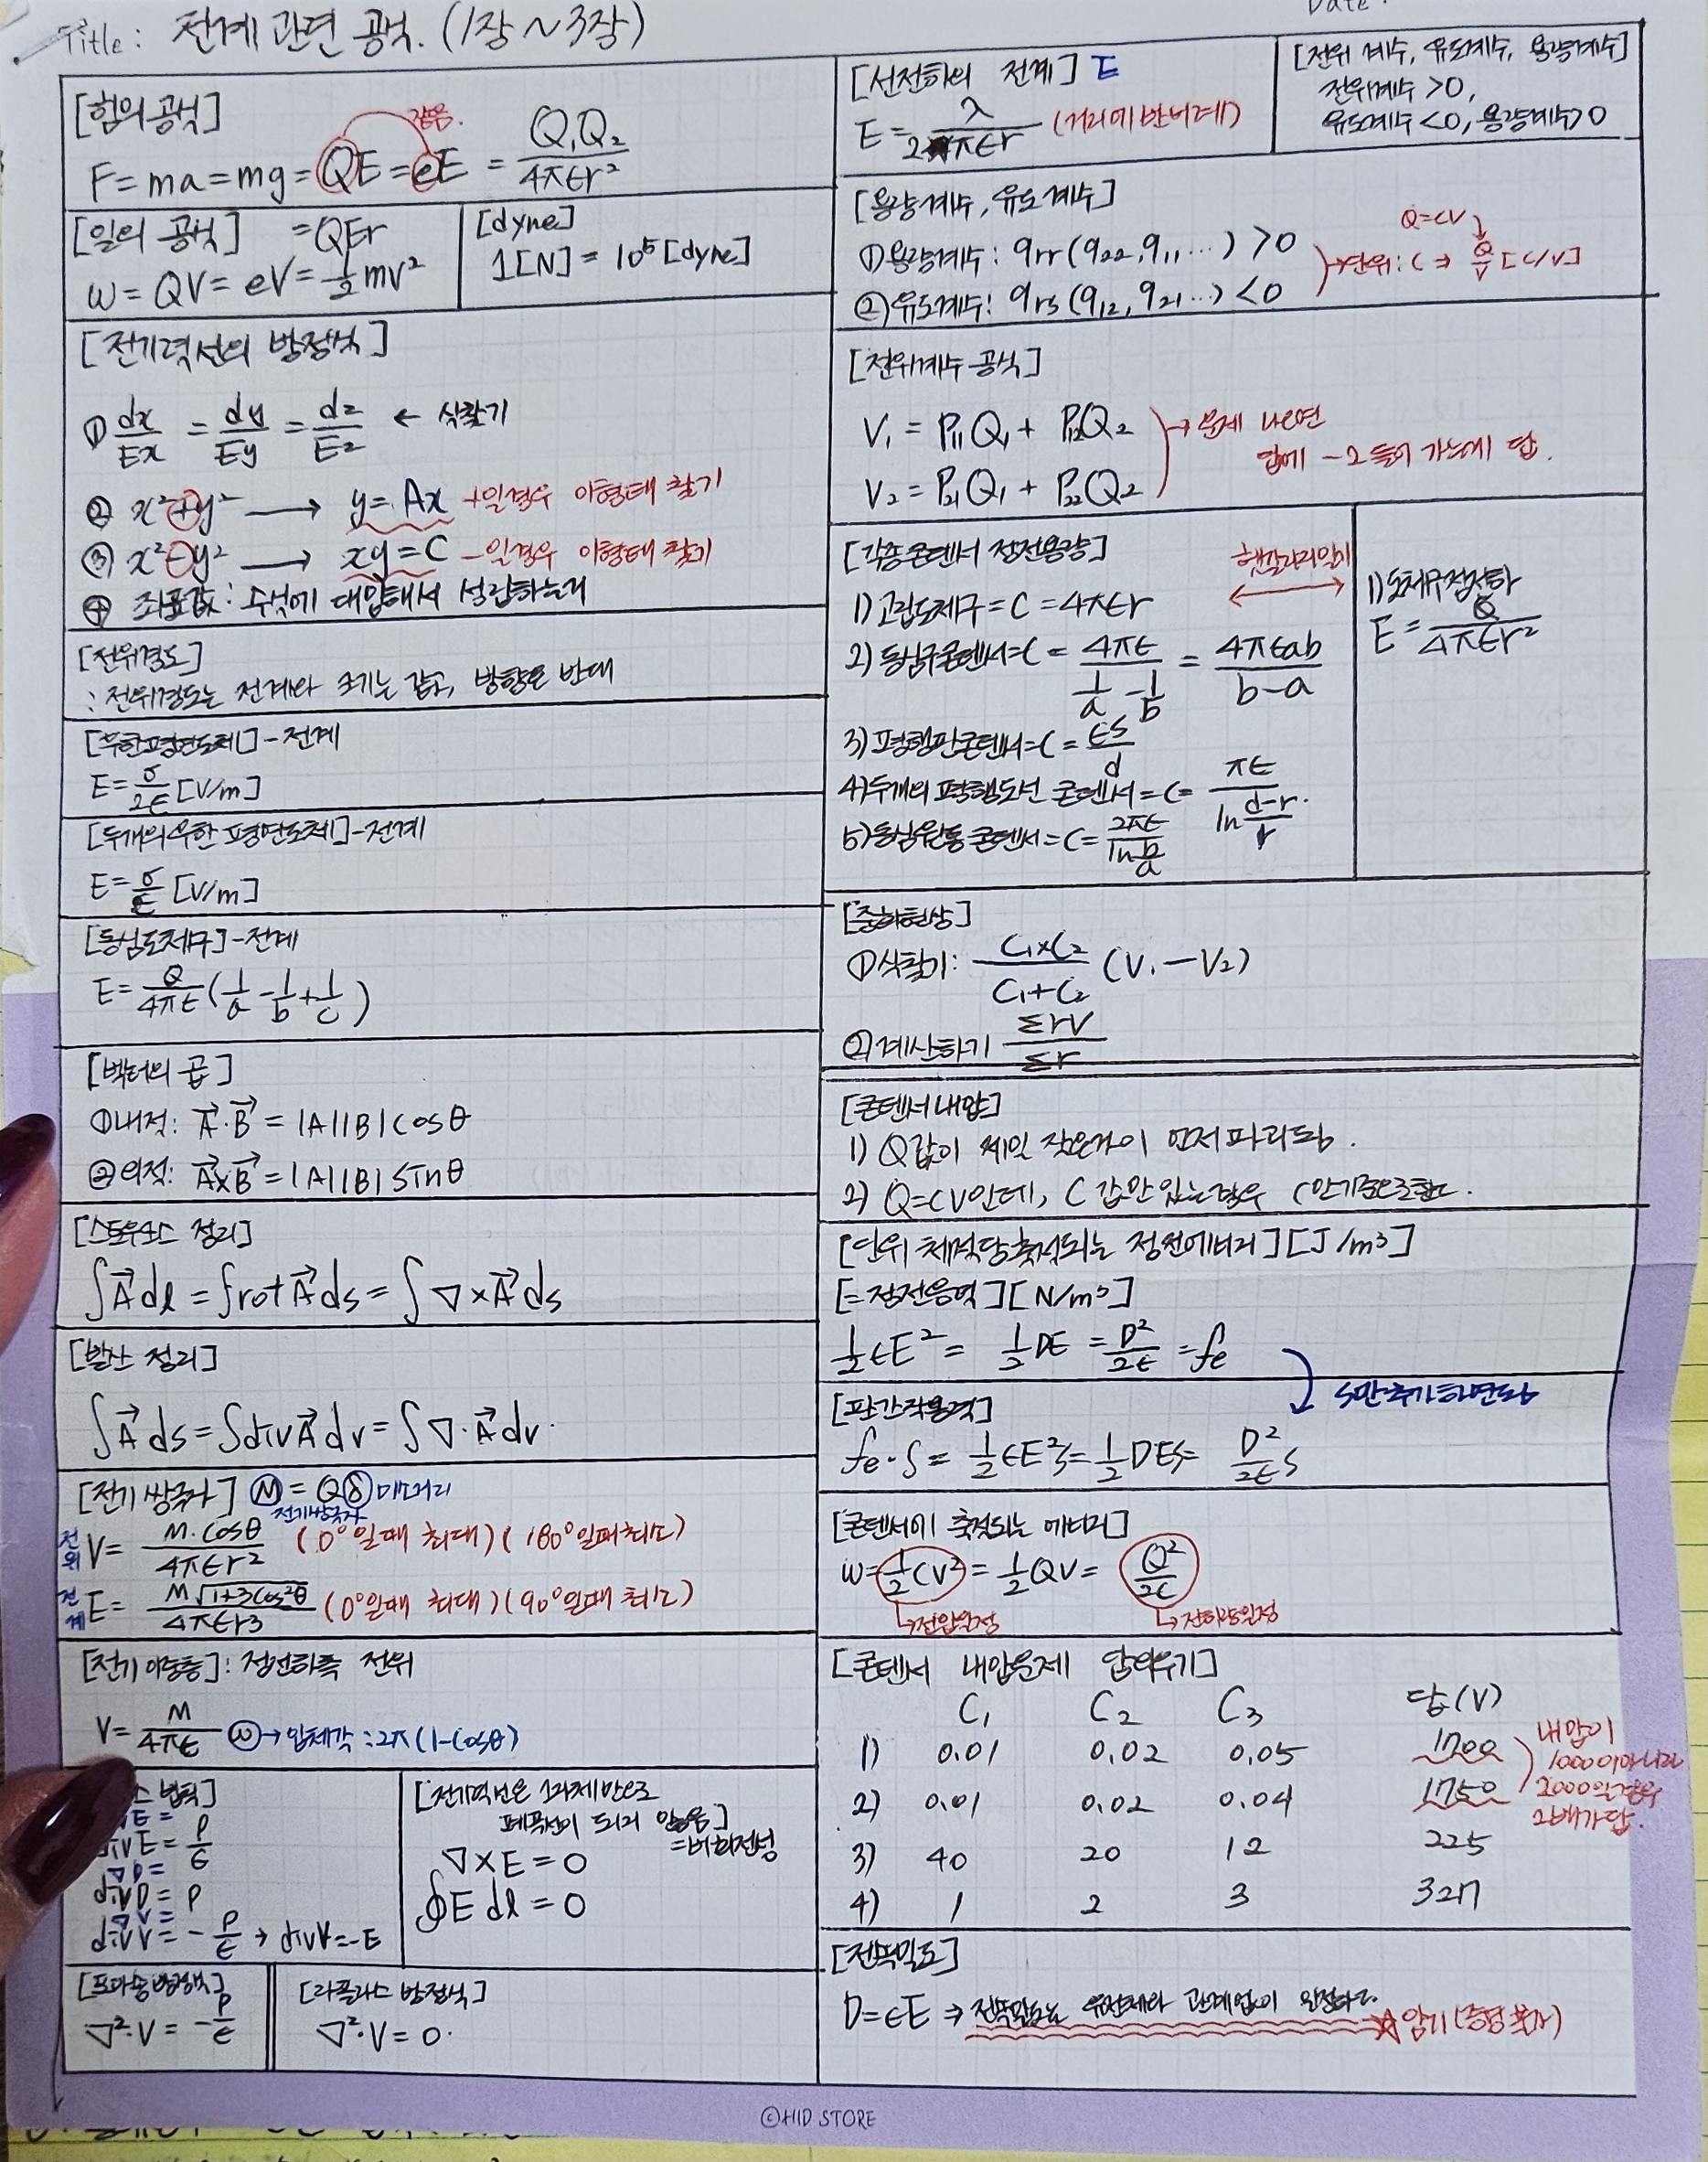 Title: 전계 관련 공식. (1장 ~ 3장)
Date:
[힘의 공식]
같음.
F = ma = mg = QE = eE = Q₁Q₂/4πεr²
[일의 공식] = QEr
W = QV = eV = 1/2 mv²
[dyne]
1[N] = 10⁵[dyne]
[전기력선의 방정식]
① dx/Ex = dy/Ey = dz/Ez ← 식찾기
② x²+y² → y = Ax +일경우 이형태 찾기
③ x²-y² → xy = C -일경우 이형태 찾기
④ 좌표값 : 수식에 대입해서 성립하는거
[전위경도]
: 전위경도는 전계와 크기는 같고, 방향은 반대
[무한평면도체] - 전계
E = σ/2ε [V/m]
[두개의 무한 평면도체] - 전계
E = σ/ε [V/m]
[동심도체구] - 전계
E = Q/4πε (1/a - 1/b + 1/c)
[벡터의 곱]
① 내적: A⃗·B⃗ = |A||B|cosθ
② 외적: A⃗×B⃗ = |A||B|sinθ
[스토욱스 정리]
∫A⃗ dl = ∫rot A⃗ ds = ∫∇×A⃗ ds
[발산 정리]
∫A⃗ ds = ∫div A⃗ dv = ∫∇·A⃗ dv.
[전기 쌍극자] M = Qδ 미소거리
전기쌍극자
전위 V = M·cosθ/4πεr² (0°일때 최대) (180°일때 최소)
전계 E = M√1+3cos²θ/4πεr3 (0°일때 최대) (90°일때 최소)
[전기 이중층] : 정전하측 전위
V = M/4πε ω → 입체각 : 2π(1-cosθ)
스 법칙]
E =
divE = ρ/ε
∇D =
divD = ρ
∇V =
divV = -ρ/ε → divV = -E
[전기력선은 그자체만으로
폐곡선이 되지 않음]
= 비회전성
∇×E = 0
∮E dl = 0
[프아송방정식]
∇²·V = -ρ/ε
[라플라스 방정식]
∇²·V = 0.
[선전하의 전계] E
E = λ/2πεr (거리에 반비례)
[전위 계수, 유도계수, 용량계수]
전위계수 >0,
유도계수 <0, 용량계수 >0
[용량계수, 유도계수]
① 용량계수 : qrr (q22, q11 …) >0
② 유도계수 : qrs (q12, q21 …) <0
Q=CV
→ 단위 : C ⇒ Q/V [C/V]
[전위계수 공식]
V₁ = P₁₁Q₁ + P₁₂Q₂
V₂ = P₂₁Q₁ + P₂₂Q₂
→ 문제 나오면
답에 -2 들어 가는게 답.
[각종콘덴서 정전용량]
헷갈리지말기
1) 고립도체구 = C = 4πεr
2) 동심구콘덴서 = C = 4πε/(1/a - 1/b) = 4πεab/b-a
3) 평행판콘덴서 = C = εS/d
4) 두개의 평행도선 콘덴서 = C = πε/ln d-r/r.
5) 동심원통 콘덴서 = C = 2πε/ln b/a
1) 도체구점전하
E = Q/4πεr²
[중화현상]
① 식찾기 : C₁×C₂/C₁+C₂ (V₁-V₂)
② 계산하기 Σrv/Σr
[콘덴서내압]
1) Q값이 제일 작은값이 먼저 파괴됨.
2) Q=CV인데, C 값만 있는경우
[단위 체적당축적되는 정전에너지] [J/m³]
[=정전응력] [N/m³]
1/2 εE² = 1/2 DE = D²/2ε = fe
S만 추가하면됨
[판간작용력]
fe·S = 1/2 εE²S = 1/2 DES = D²/2ε S
[콘덴서에 축적되는 에너지]
W = 1/2 CV² = 1/2 QV = Q²/2C
↳ 전압일정
↳ 전하량일정
[콘덴서 내압문제 답외우기]
C₁ C₂ C₃ 답(V)
1) 0.01 0.02 0.05 1700
2) 0.01 0.02 0.04 1750
내압이
1000이아니라
2000일경우
2배가답.
3) 40 20 12 225
4) 1 2 3 327
[전속밀도]
D = εE → 전속밀도는 유전체와 관계없이 일정하다.
☆암기
©HID STORE